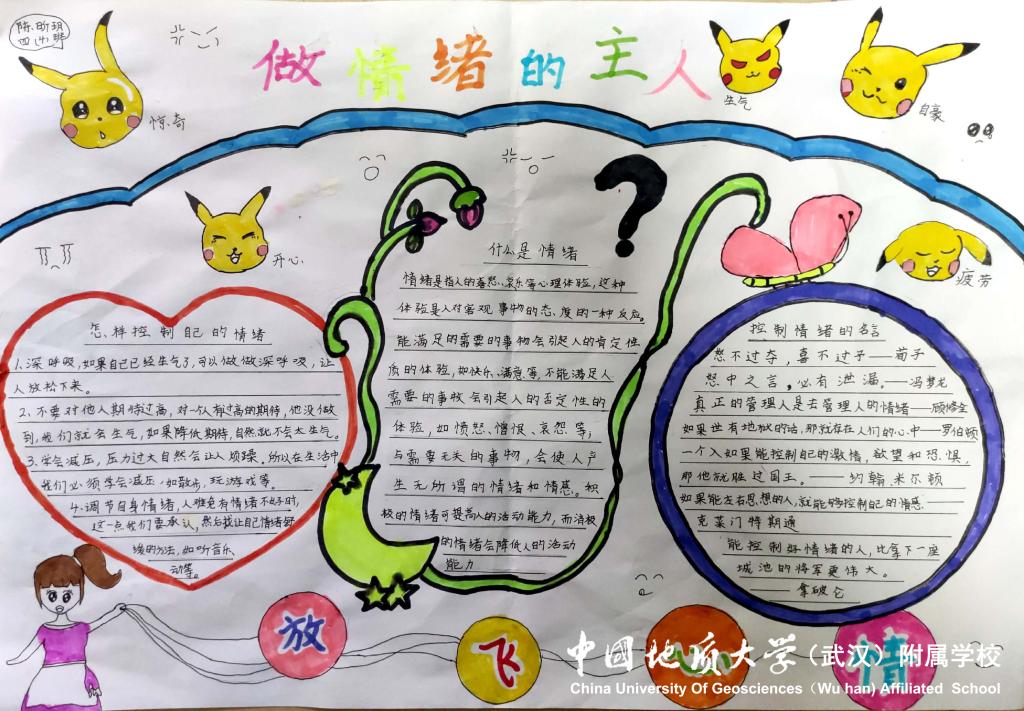 陈昕玥
四(4)班
做情绪的主人
惊奇
生气
自豪
开心
疲劳
怎样控制自己的情绪
1.深呼吸,如果自己已经生气了,可以做做深呼吸,让
人放松下来。
2、不要对他人期待过高,对一个人有过高的期待,他没做
到,我们就会生气,如果降低期待,自然就不会太生气。
3.学会减压,压力过大自然会让人烦躁。所以在生活中
我们必须学会减压,如散步,玩游戏等。
4.调节自身情绪,人难免有情绪不好时,
这一点我们要承认,然后找让自己情绪舒
缓的方法,如听音乐、
动等。
什么是情绪
情绪是指人的喜怒、哀乐等心理体验,这种
体验是人对客观事物的态度的一种反应。
能满足的需要的事物会引起人的肯定性
质的体验,如快乐、满意等,不能满足人
需要的事物会引起人的否定性的
体验,如愤怒、憎恨、哀怨等;
与需要无关的事物,会使人产
生无所谓的情绪和情感。积
极的情绪可提高人的活动能力,而消极
的情绪会降低人的活动
能力
控制情绪的名言
怒不过夺,喜不过予——荀子
怒中之言,必有泄漏。——冯梦龙
真正的管理人是去管理人的情绪——顾修全
如果世有地狱的话,那就存在人们的心中—罗伯顿
一个人如果能控制自己的激情,欲望和恐惧,
那他就胜过国王。——约翰米尔顿
如果能左右思想的人,就能够控制自己的情感——
克莱门特斯通
能控制好情绪的人,比拿下一座
城池的将军更伟大。
——拿破仑
放飞心情
中国地质大学(武汉)附属学校
China University Of Geosciences（Wu han) Affiliated School